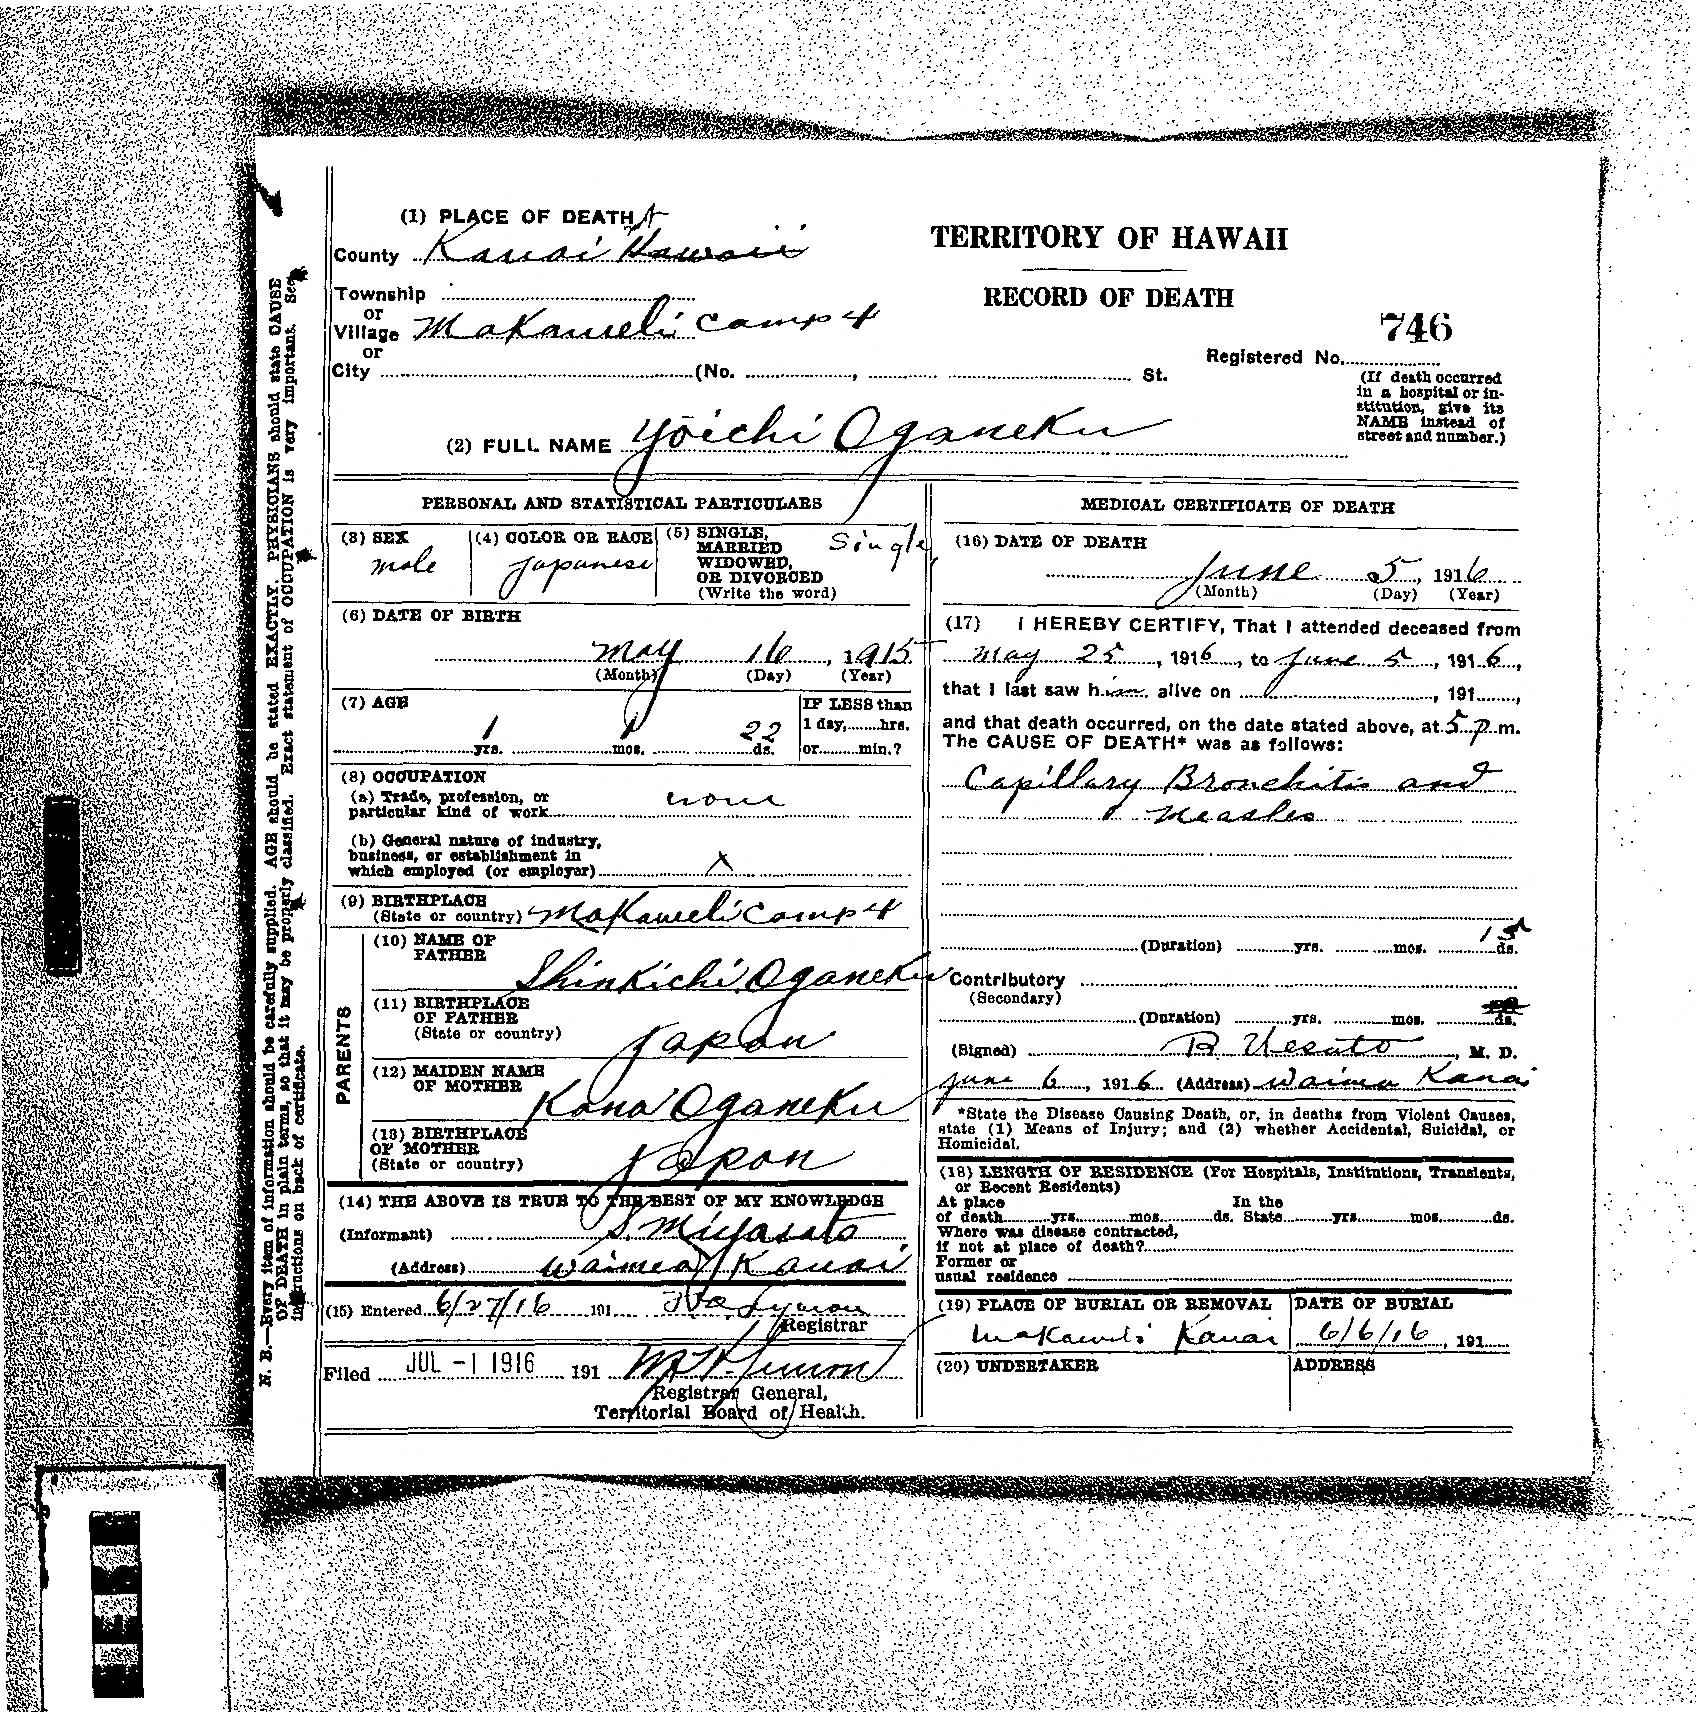 (1) PLACE OF DEATH
County Kauai Hawaii
TERRITORY OF HAWAII
RECORD OF DEATH
Township
or
Village Makaweli Camp 4
or
City (No. , St.
746
Registered No.
(If death occurred
in a hospital or in-
stitution, give its
NAME instead of
street and number.)
(2) FULL NAME Yoichi Oganeku
PERSONAL AND STATISTICAL PARTICULARS
(3) SEX
male
(4) COLOR OR RACE
Japanese
(5) SINGLE,
MARRIED
WIDOWED,
OR DIVORCED
(Write the word)
Single
(6) DATE OF BIRTH
May 16, 1915
(Month) (Day) (Year)
(7) AGE
1 yrs. 1 mos. 22 ds.
IF LESS than
1 day, hrs.
or min.?
(8) OCCUPATION
(a) Trade, profession, or
particular kind of work none
(b) General nature of industry,
business, or establishment in
which employed (or employer) x
(9) BIRTHPLACE
(State or country) Makaweli Camp 4
PARENTS
(10) NAME OF
FATHER
Shinkichi Oganeku
(11) BIRTHPLACE
OF FATHER
(State or country)
Japan
(12) MAIDEN NAME
OF MOTHER
Kana Oganeku
(13) BIRTHPLACE
OF MOTHER
(State or country)
Japan
(14) THE ABOVE IS TRUE TO THE BEST OF MY KNOWLEDGE
(Informant) S. Miyasato
(Address) Waimea Kauai
(15) Entered 6/27/16 191
Registrar
Filed JUL -1 1916 191
Registrar General,
Territorial Board of Health.
MEDICAL CERTIFICATE OF DEATH
(16) DATE OF DEATH
June 5, 1916
(Month) (Day) (Year)
(17) I HEREBY CERTIFY, That I attended deceased from
May 25, 1916, to June 5, 1916,
that I last saw him alive on , 191 ,
and that death occurred, on the date stated above, at 5 p m.
The CAUSE OF DEATH* was as follows:
Capillary Bronchitis and
Measles
15
(Duration) yrs. mos. ds.
Contributory
(Secondary)
(Duration) yrs. mos. ds.
(Signed) R Uesato, M. D.
June 6, 1916 (Address) Waimea Kauai
*State the Disease Causing Death, or, in deaths from Violent Causes,
state (1) Means of Injury; and (2) whether Accidental, Suicidal, or
Homicidal.
(18) LENGTH OF RESIDENCE (For Hospitals, Institutions, Transients,
or Recent Residents)
At place In the
of death yrs. mos. ds. State yrs. mos. ds.
Where was disease contracted,
if not at place of death?
Former or
usual residence
(19) PLACE OF BURIAL OR REMOVAL
Makaweli Kauai
DATE OF BURIAL
6/6/16, 191
(20) UNDERTAKER
ADDRESS
N. B.—Every item of information should be carefully supplied. AGE should be stated EXACTLY. PHYSICIANS should state CAUSE
OF DEATH in plain terms, so that it may be properly classified. Exact statement of OCCUPATION is very important. See
instructions on back of certificate.